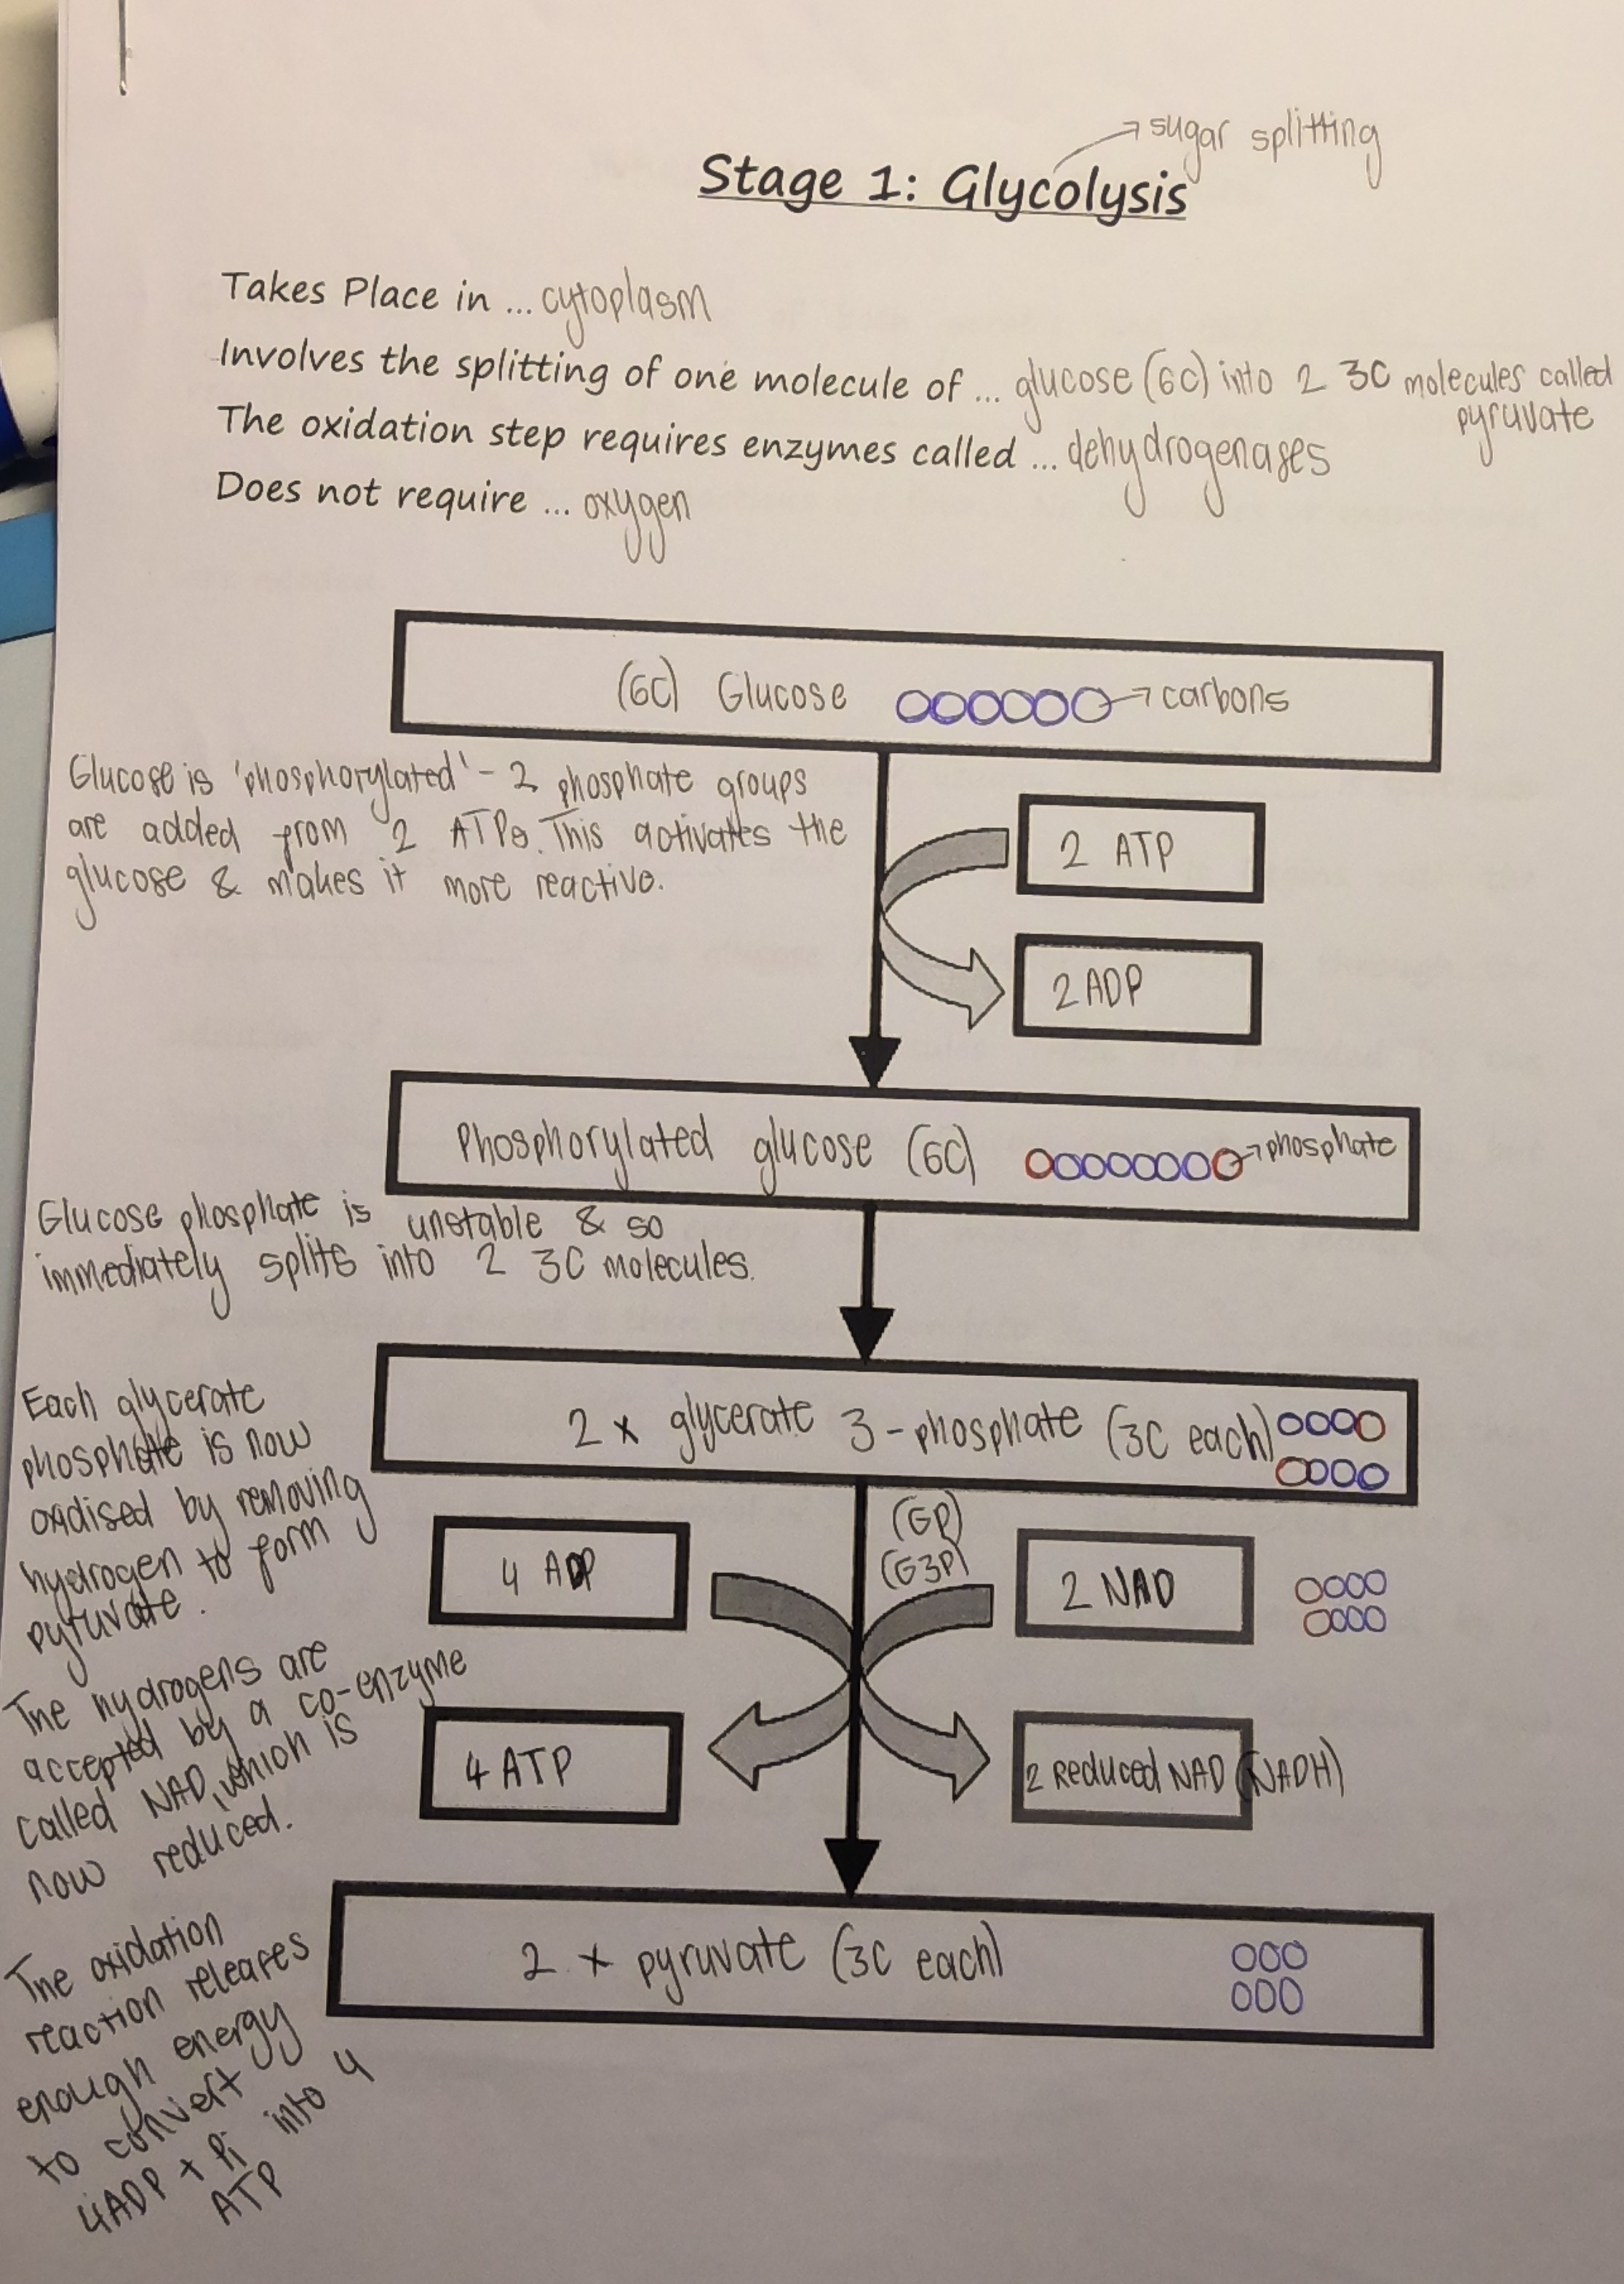 → sugar splitting
Stage 1: Glycolysis
Takes Place in ... cytoplasm
Involves the splitting of one molecule of ... glucose (6C) into 2 3C molecules called
pyruvate
The oxidation step requires enzymes called ... dehydrogenases
Does not require ... oxygen
(6C) Glucose → carbons
Glucose is 'phosphorylated' - 2 phosphate groups
are added from 2 ATPs. This activates the
glucose & makes it more reactive.
2 ATP
2 ADP
Phosphorylated glucose (6C) → phosphate
Glucose phosphate is unstable & so
immediately splits into 2 3C molecules.
2 x glycerate 3-phosphate (3C each)
(GP)
(G3P)
Each glycerate
phosphate is now
oxidised by removing
hydrogen to form
pyruvate.
4 ADP
2 NAD
The hydrogens are
accepted by a co-enzyme
called NAD, which is
now reduced.
4 ATP
2 Reduced NAD (NADH)
2 x pyruvate (3C each)
The oxidation
reaction releases
enough energy
to convert
4ADP + Pi into 4
ATP